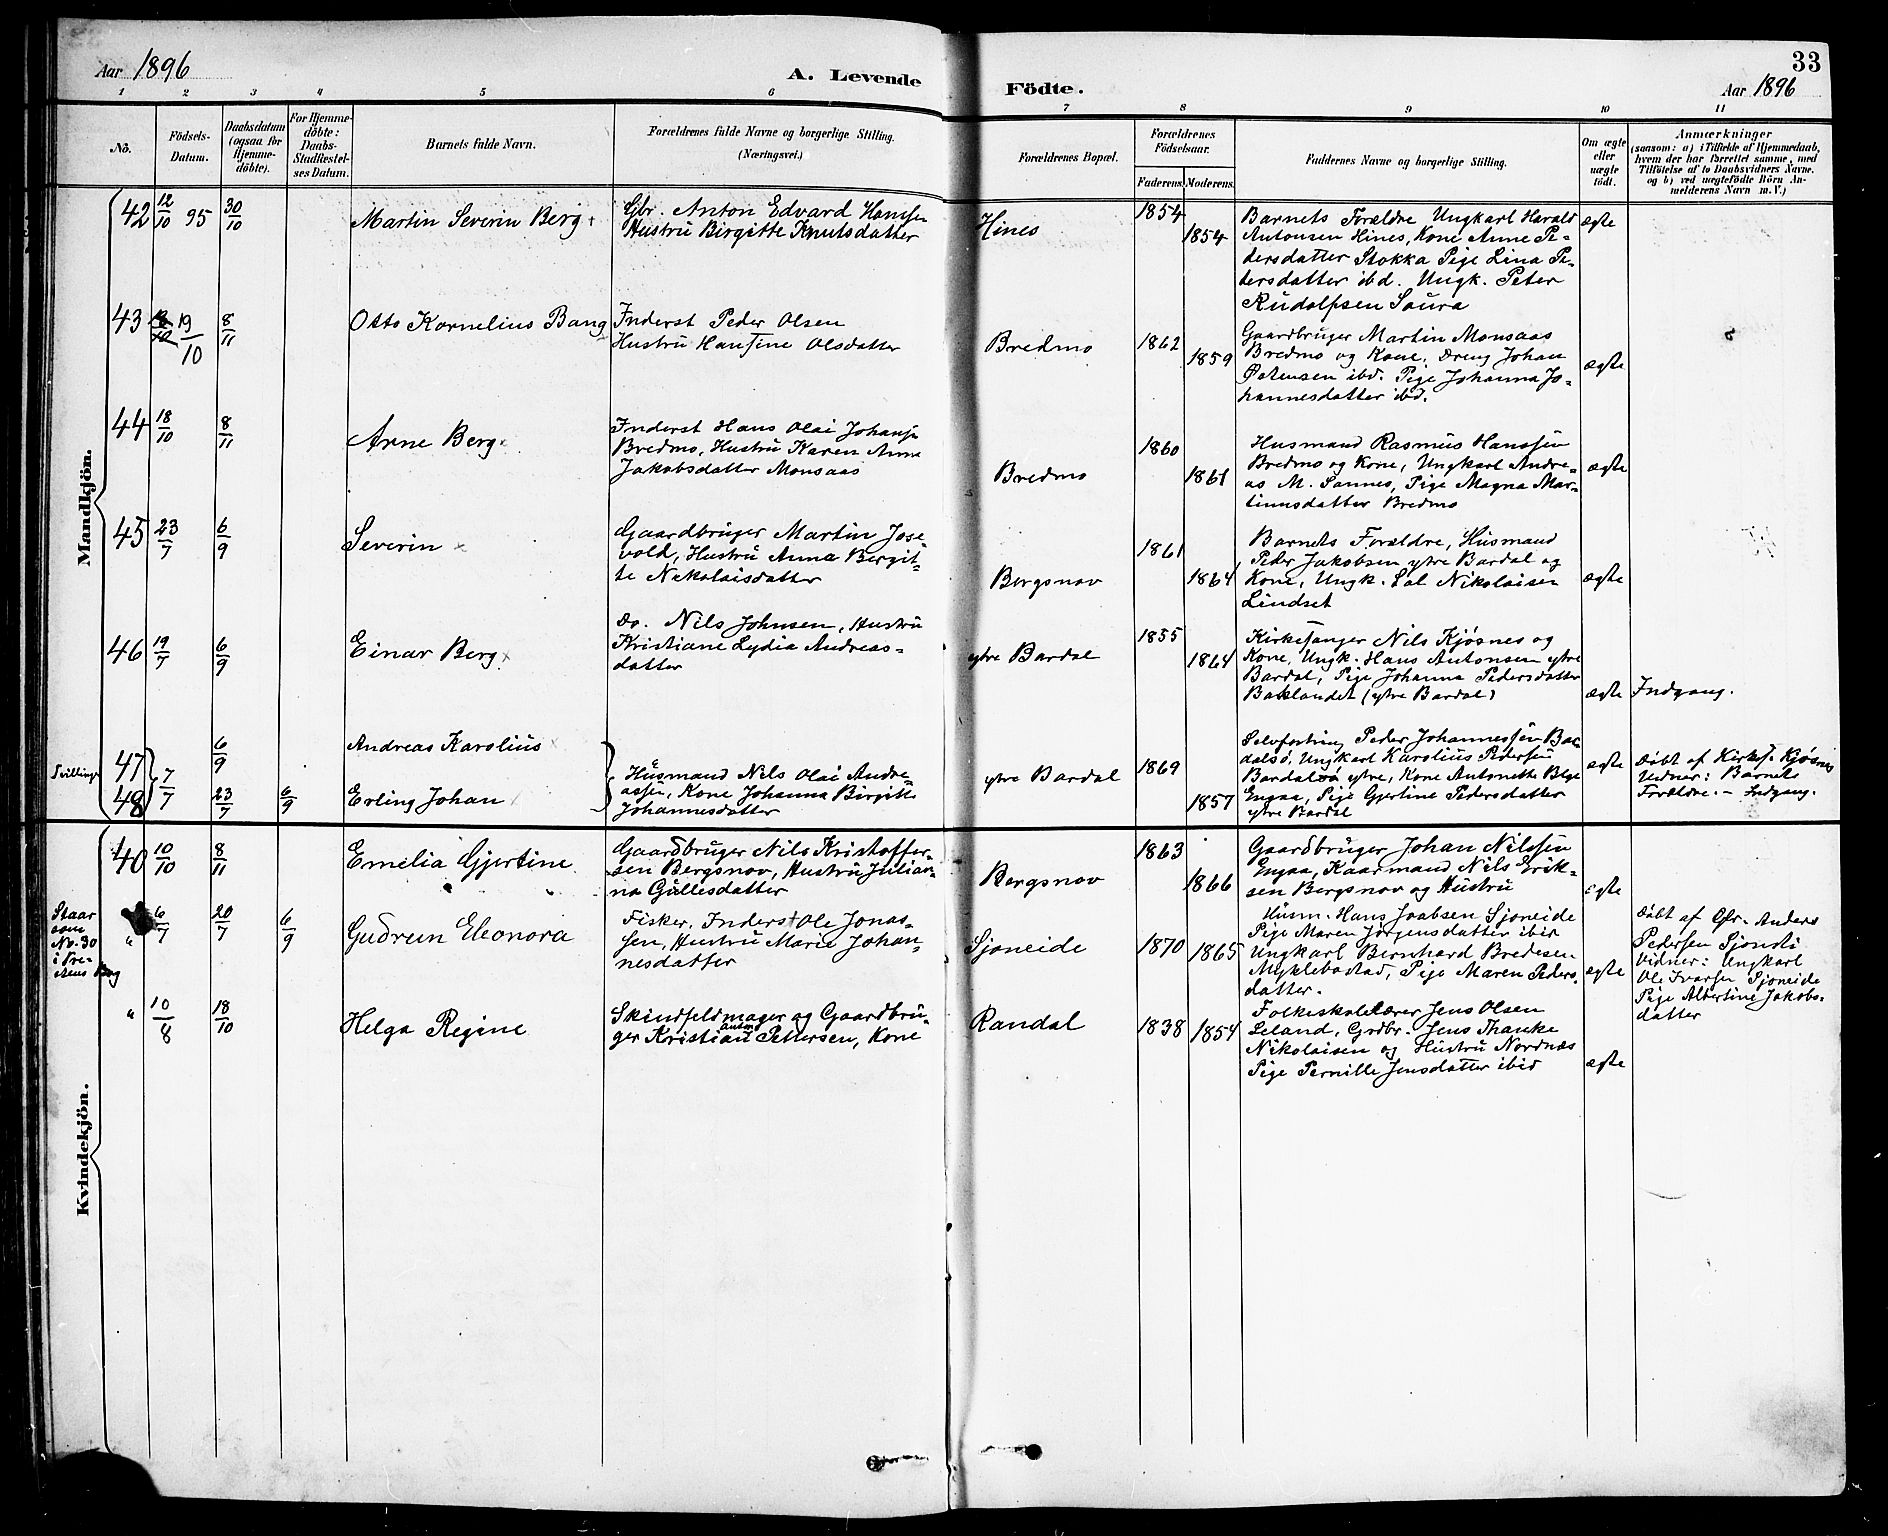 Aar 1896
A. Levende
Födte.
33
Aar 1896
1 2 3 4 5 6 7 8 9 10 11
No.
Födsels-
Datum.
Daabsdatum
(ogsaa for
Hjemme-
döbte).
For Hjemme-
döbte:
Daabs-
Stadfæstel-
ses Datum.
Barnets fulde Navn.
Forældrenes fulde Navne og borgerlige Stilling.
(Næringsvei.)
Forældrenes Bopæl.
Forældrenes
Födselsaar.
Faderens. Moderens.
Faddernes Navne og borgerlige Stilling.
Om ægte
eller
uægte
födt.
Anmærkninger
(saasom: a) i Tilfælde af Hjemmedaab,
hvem der har forrettet samme, med
Tilföielse af to Daabsvidners Navne.
og b) ved uægtefödte Börn An-
melderens Navn m. V.)
Mandkjön.
42 12/10 95 30/10
Martin Severin Berg
Gbr. Anton Edvard Hansen
Hustru Birgitte Knutsdatter
Hines
1854
1854
Barnets Forældre Ungkarl Harald
Antonsen Hines, Kone Anne Pe-
dersdatter Stokka Pige Lina Pe-
dersdatter ibd. Ungk. Peter
Rudolfsen Saura
ægte
43 19/10 8/11
Otto Kornelius Bang
Inderst Peder Olsen
Hustru Hansine Olsdatter
Bredmo
1862
1859
Gaardbruger Martin Monsaas
Bredmo og Kone, Dreng Johan
Petersen ibd. Pige Johanna Jo-
hannesdatter ibd.
ægte
44 18/10 8/11
Arne Berg
Inderst Hans Olai Johansn
Bredmo, Hustru Karen Anna
Jakobsdatter Monsaas
Bredmo
1860
1861
Husmand Rasmus Hanssen
Bredmo og Kone, Ungkarl Andre-
as M. Sannes, Pige Magna Mar-
tinusdatter Bredmo
ægte
45 23/7 6/9
Severin
Gaardbruger Martin Jose-
vold, Hustru Anna Bergit-
te Nikolaisdatter
Bergsnov
1861
1864
Barnets Forældre, Husmand
Peder Jakobsen ytre Bardal og
Kone, Ungk. Sal Nikolaisen
Lindset
ægte
46 19/7 6/9
Einar Berg
Do. Nils Johnsen, Hustru
Kristiane Lydia Andreas-
datter
ytre Bardal
1855
1864
Kirkesanger Nils Kjøsnes og
Kone, Ungk. Hans Antonsen ytre
Bardal, Pige Johanna Pedersdatter
Baklandet (ytre Bardal)
ægte
Indgang.
Tvillinge
47
48
7/7
6/9
23/7 6/9
Andreas Karolius
Erling Johan
Husmand Nils Olai Andre-
assen, Kone Johanna Birgitte
Johannesdatter
ytre Bardal
1869
1857
Selvfostring Peder Johannessen Bar-
dalsø, Ungkarl Karolius Pedersen
Bardalsø ytre, Kone Antonette
Engaa, Pige Gjertine Pedersdatter
ytre Bardal
ægte
Døbt af Kirkes. Kjøsnes
Vidner: Barnets
Forældre. – Indgang.
Kvindekjön.
40 10/10 8/11
Emelia Gjertine
Gaardbruger Nils Kristoffer-
sen Bergsnov, Hustru Julian-
na Gullesdatter
Bergsnov
1863
1866
Gaardbruger Johan Nilssen
Engaa, Kaarmand Nils Erik-
sen Bergsnov og Hustru
ægte
Staar
som
No. 30
i Præ-
stens Bog
" 6/7 20/7 6/9
Gudrun Eleonora
Fisker, Inderst Ole Jonas-
sen, Hustru Marie Johan-
nesdatter
Sjoneide
1870 1865
Husm. Hans Joabsen Sjoneide
Pige Maren Jørgensdatter ibid
Ungkarl Bernhard Bredesen
Myklebostad, Pige Maren Peders-
datter.
ægte
Døbt af Gbr. Anders
Pedersen Sjonsti
Vidner: Ungkarl
Ole Ivarsen Sjoneide
Pige Albertine Jakobs-
datter
" 10/8 18/10
Helga Regine
Skindfeldmager og Gaardbru-
ger Kristian Anton Pettersen, Kone
Randal
1838 1854
Folkeskolelærer Jens Olsen
Leland, Grdbr. Jens Thanke
Nikolaisen og Hustru Nordnæs
Pige Pernille Jensdatter ibid
ægte